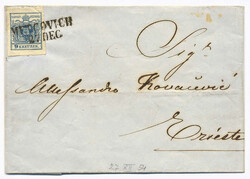 METCOVICH
DEC.
9 KREUZER
Sigr
Alessandro Kovačević
Trieste
27 XII 54